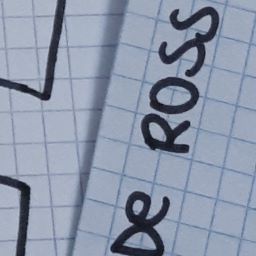 De ROSS